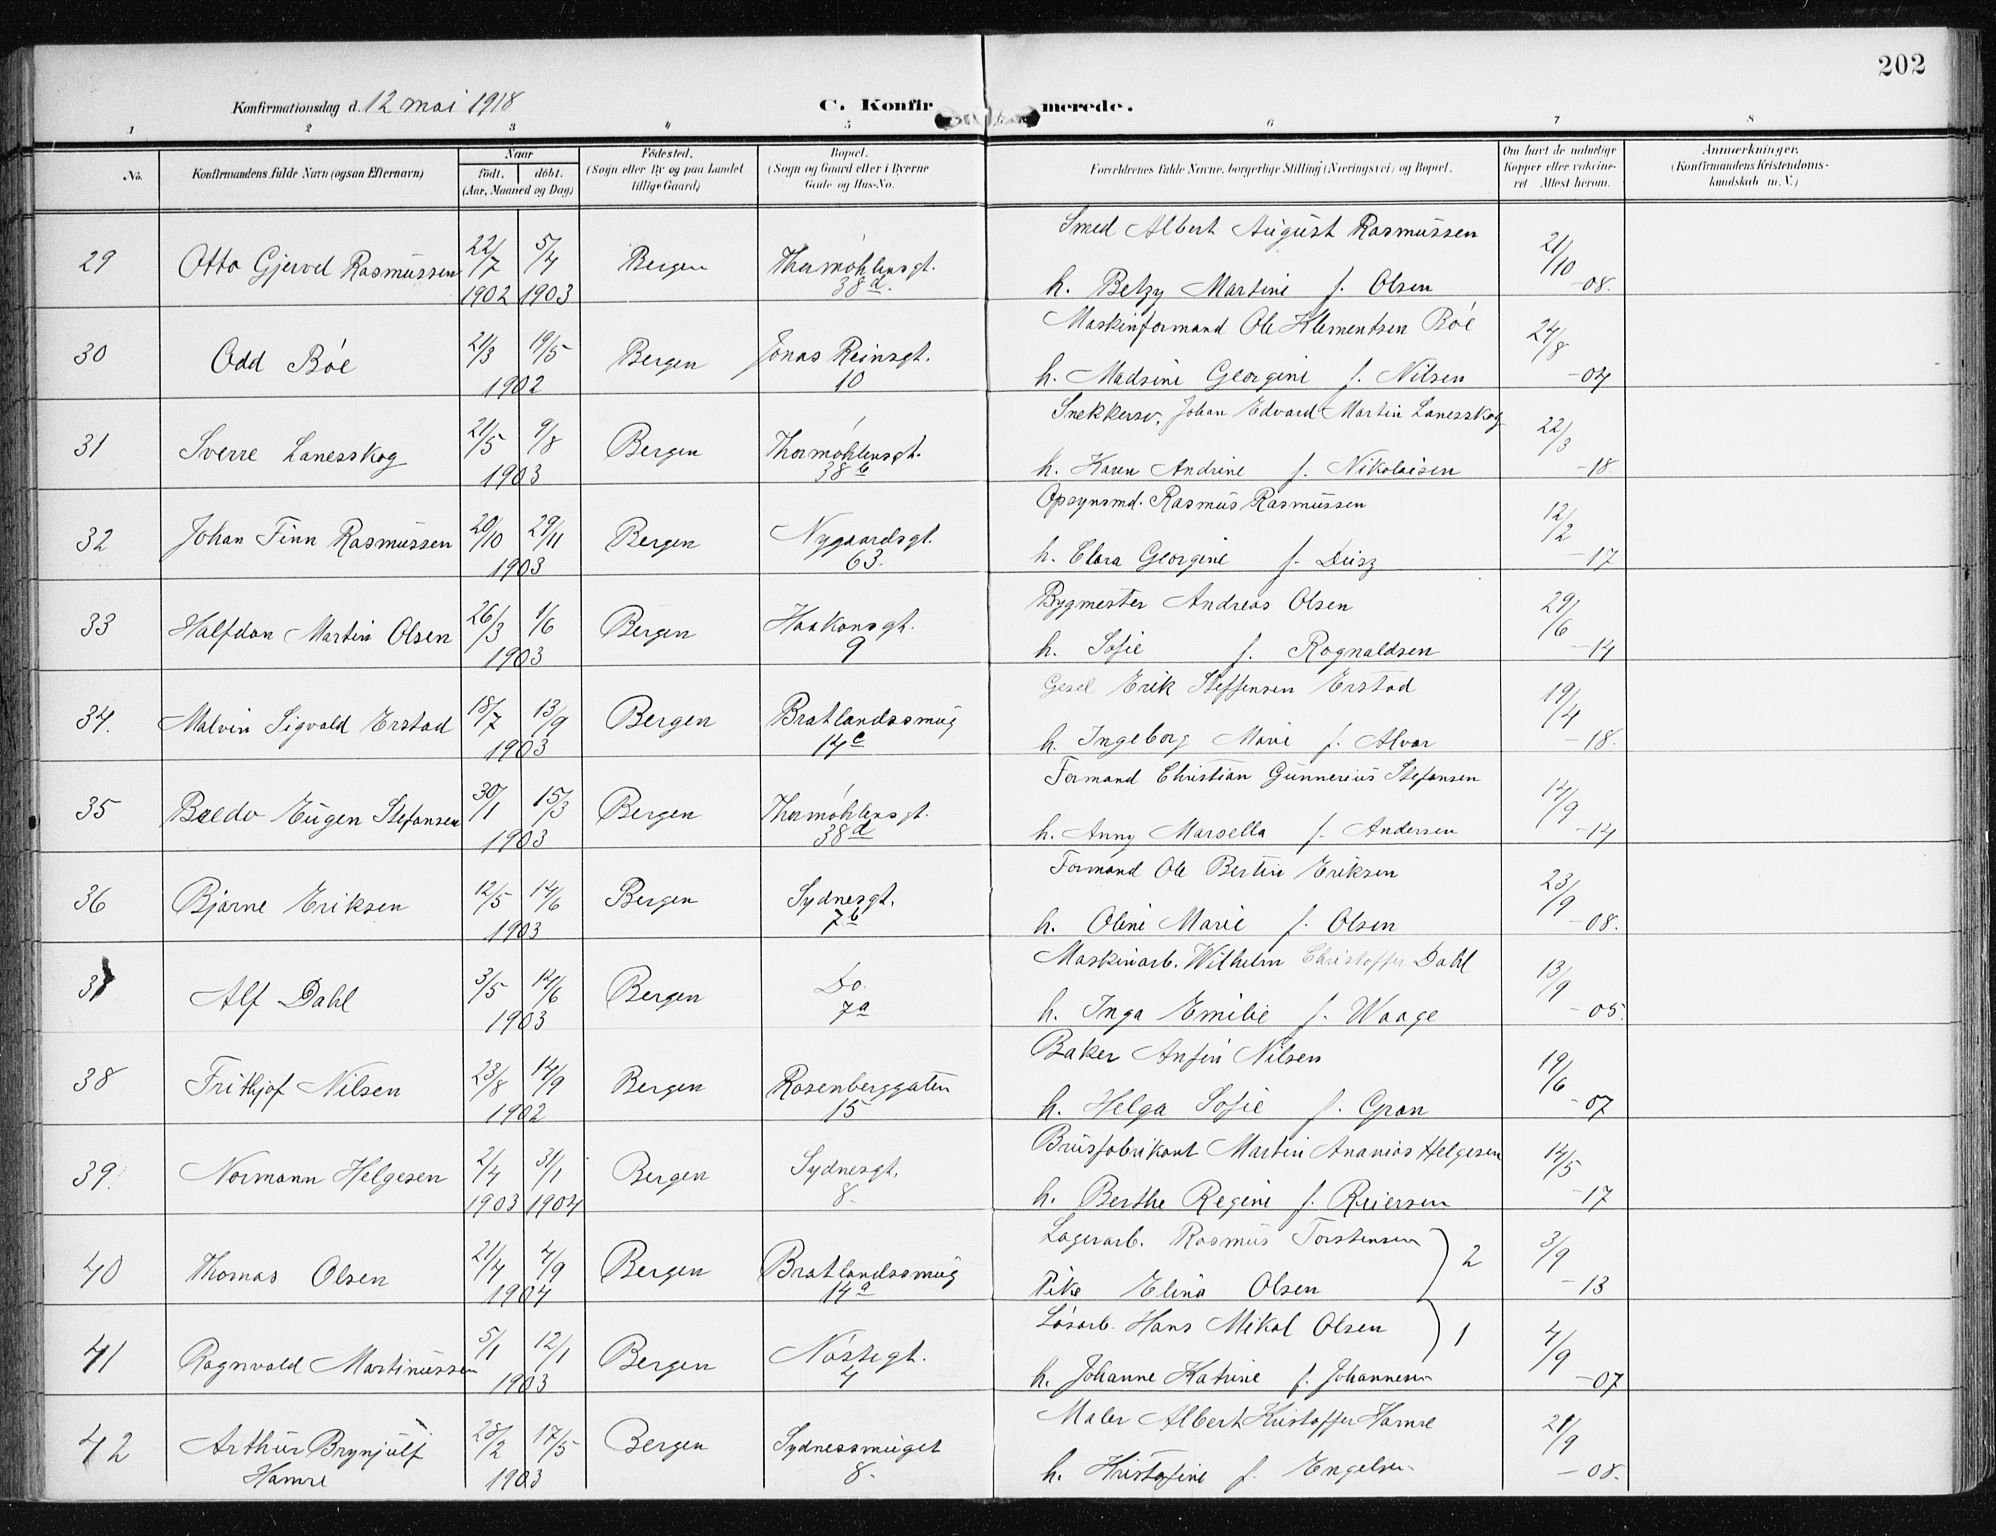 202
Konfirmationsdag d. 12 mai 1918 C. Konfir merede.
1 2 3 4 5 6 7 8
No. Konfirmandens fulde Navn (ogsaa Efternavn) Naar født. døbt. (Aar, Maaned og Dag) Fødested. (Sogn eller By og paa Landet tillige Gaard) Bopæl. (Sogn og Gaard eller i Byerne Gade og Hus-No. Forældrenes fulde Navne, borgerlige Stilling (Næringsvei) og Bopæl. Om havt de naturlige Kopper eller vaccineret Attest herom. Anmærkninger. (Konfirmandens Kristendomskundskab m. V.)
Smed Albert August Rasmussen
29 Otto Gjervd Rasmussen 22/7 5/4 Bergen Thormøhlensgt. 21/10
1902 1903 38d. h. Betzy Martine f. Olsen -08.
Maskinformand Ole Klementsen Bøe
30 Odd Bøe 21/3 19/5 Bergen Jonas Reinsgt. 24/8
1902 10 h. Madsine Georgine f. Nilsen -04
Snekkersv. Johan Edvard Martin Lanesskog
31 Sverre Lanesskog 21/5 9/8 Bergen Thormøhlensgt. 22/3
1903 38b h. Karen Andrine f. Nikolaisen -18.
Opsynsmd. Rasmus Rasmussen
32 Johan Finn Rasmussen 20/10 29/11 Bergen Nygaardsgt. 12/2
1903 63. h. Clara Georgine f. Dusz -17
Bygmester Andreas Olsen
33 Halfdan Martin Olsen 26/3 1/6 Bergen Haakonsgt. 29/6
1903 9 h. Sofie f. Rognaldsen -14
Gesel Erik Steffensen Erstad
34. Malvin Sigvald Erstad 18/7 13/9 Bergen Bratlandssmug 19/4
1903 14c h. Ingeborg Marie f. Alvær -18.
Formand Christian Gunnerius Stefansen
35 Baldo Eugen Stefansen 30/1 15/3 Bergen Thormøhlensgt. 14/9
1903 38d h. Anny Marsella f. Andersen -14
Formand Ole Bertin Eriksen
36 Bjarne Eriksen 12/5 14/6 Bergen Sydnesgt. 23/9
1903 7b h. Oline Marie f. Olsen -08.
Maskinarb. Wilhelm Christoffer Dahl
37 Alf Dahl 3/5 14/6 Bergen Do. 13/9
1903 7a h. Inga Emilie f. Waage -05.
Baker Anfin Nilsen
38 Frithjof Nilsen 23/8 14/9 Bergen Rosenberggaten 19/6
1902 15 h. Helga Sofie f. Gran -07
Brusfabrikant Martin Ananias Helgesen
39. Normann Helgesen 2/4 31/1 Bergen Sydnesgt. 14/5
1903 1904 8. h. Berthe Regine f. Reiersen -17
Lagerarb. Rasmus Torstensen
40 Thomas Olsen 21/4 4/9 Bergen Bratlandssmug 2 3/9
1904 14a Pike Elina Olsen -13
Løsarb. Hans Mikal Olsen
41 Ragnvald Martinussen 5/1 12/1 Bergen Nøstegt. 1 4/9
1903 4 h. Johanne Katrine f. Johannesen -07
Maler Albert Kristoffer Hamre
42 Arthur Brynjulf 28/2 17/5 Bergen Sydnessmuget 21/9
Hamre 1903 8. h. Kristofine f. Engelsen -08.